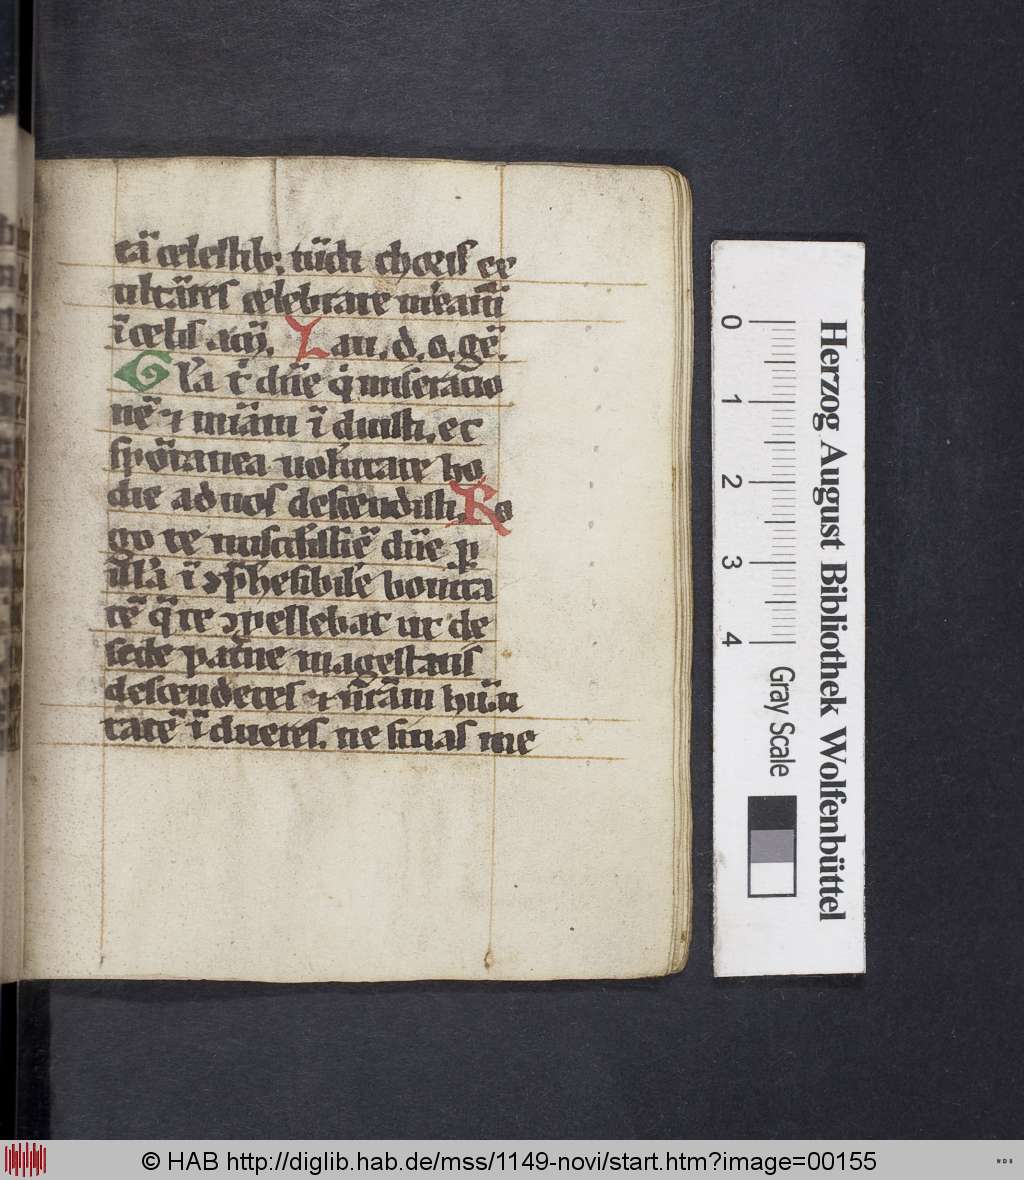 tā celestib; tūdī choris ex
ultātes celebrare m̄eamī
ī celis. am̄. Lau. d. o. gē.
Gl̄a t̄ dn̄e qͥ miseracio
nē ⁊ miām īduisti. et
spōtanea uolūtate ho
die ad nos descendisti. Ro
go te dn̄e ꝑ
illā ī ɔp̄hēsibilē bonita
tē q̄ te ɔpellebat ut de
sede pat̄ne magestatis
descenderes ⁊ n̄rām hūi
tatē īdueres. ne sinas me
0 1 2 3 4
Gray Scale
Herzog August Bibliothek Wolfenbüttel
© HAB http://diglib.hab.de/mss/1149-novi/start.htm?image=00155